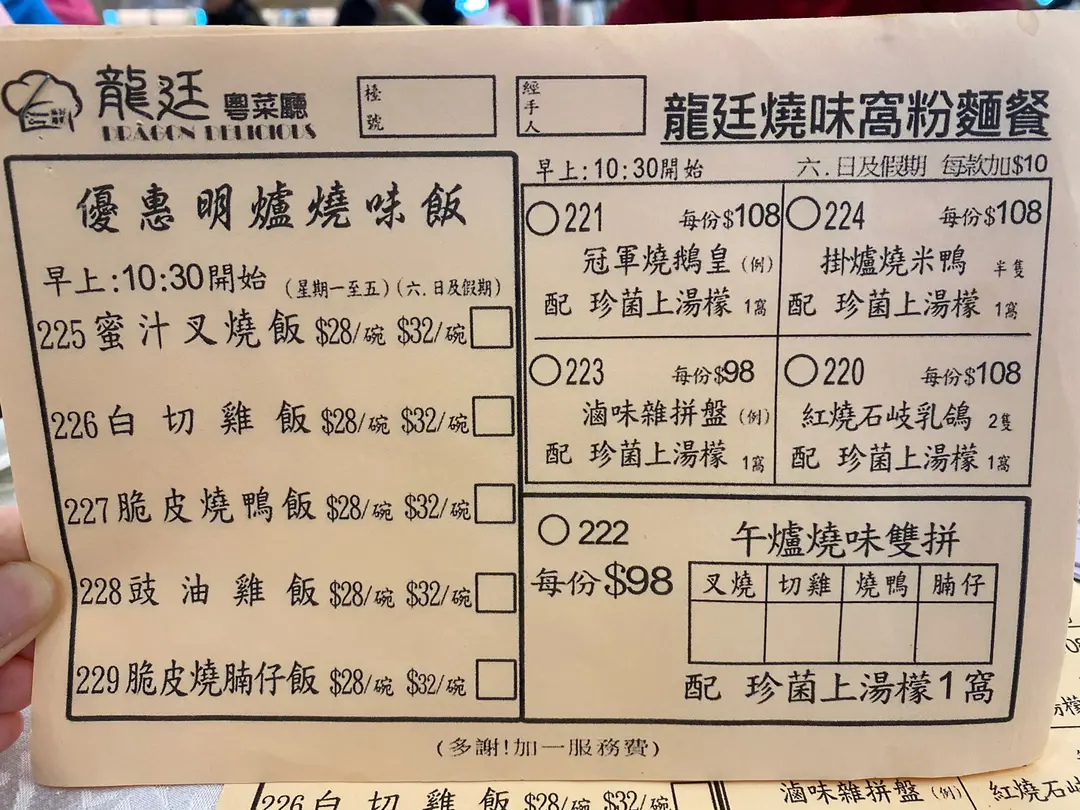 龍廷 粵菜廳
DRAGON DELICIOUS
檯號
經手人
龍廷燒味窩粉麵餐
優惠明爐燒味飯
早上:10:30開始 (星期一至五)(六.日及假期)
225 蜜汁叉燒飯 $28/碗 $32/碗
226 白切雞飯 $28/碗 $32/碗
227 脆皮燒鴨飯 $28/碗 $32/碗
228 豉油雞飯 $28/碗 $32/碗
229 脆皮燒腩仔飯 $28/碗 $32/碗
早上:10:30開始 六.日及假期 每款加$10
221 每份$108
冠軍燒鵝皇 (例)
配 珍菌上湯檬 1窩
224 每份$108
掛爐燒米鴨 半隻
配 珍菌上湯檬 1窩
223 每份$98
滷味雜拼盤 (例)
配 珍菌上湯檬 1窩
220 每份$108
紅燒石岐乳鴿 2隻
配 珍菌上湯檬 1窩
222 午爐燒味雙拼
每份$98
叉燒 切雞 燒鴨 腩仔
配 珍菌上湯檬1窩
(多謝!加一服務費)
226 白切雞飯 $28/碗 $32/碗
滷味雜拼盤 (例) 紅燒石岐